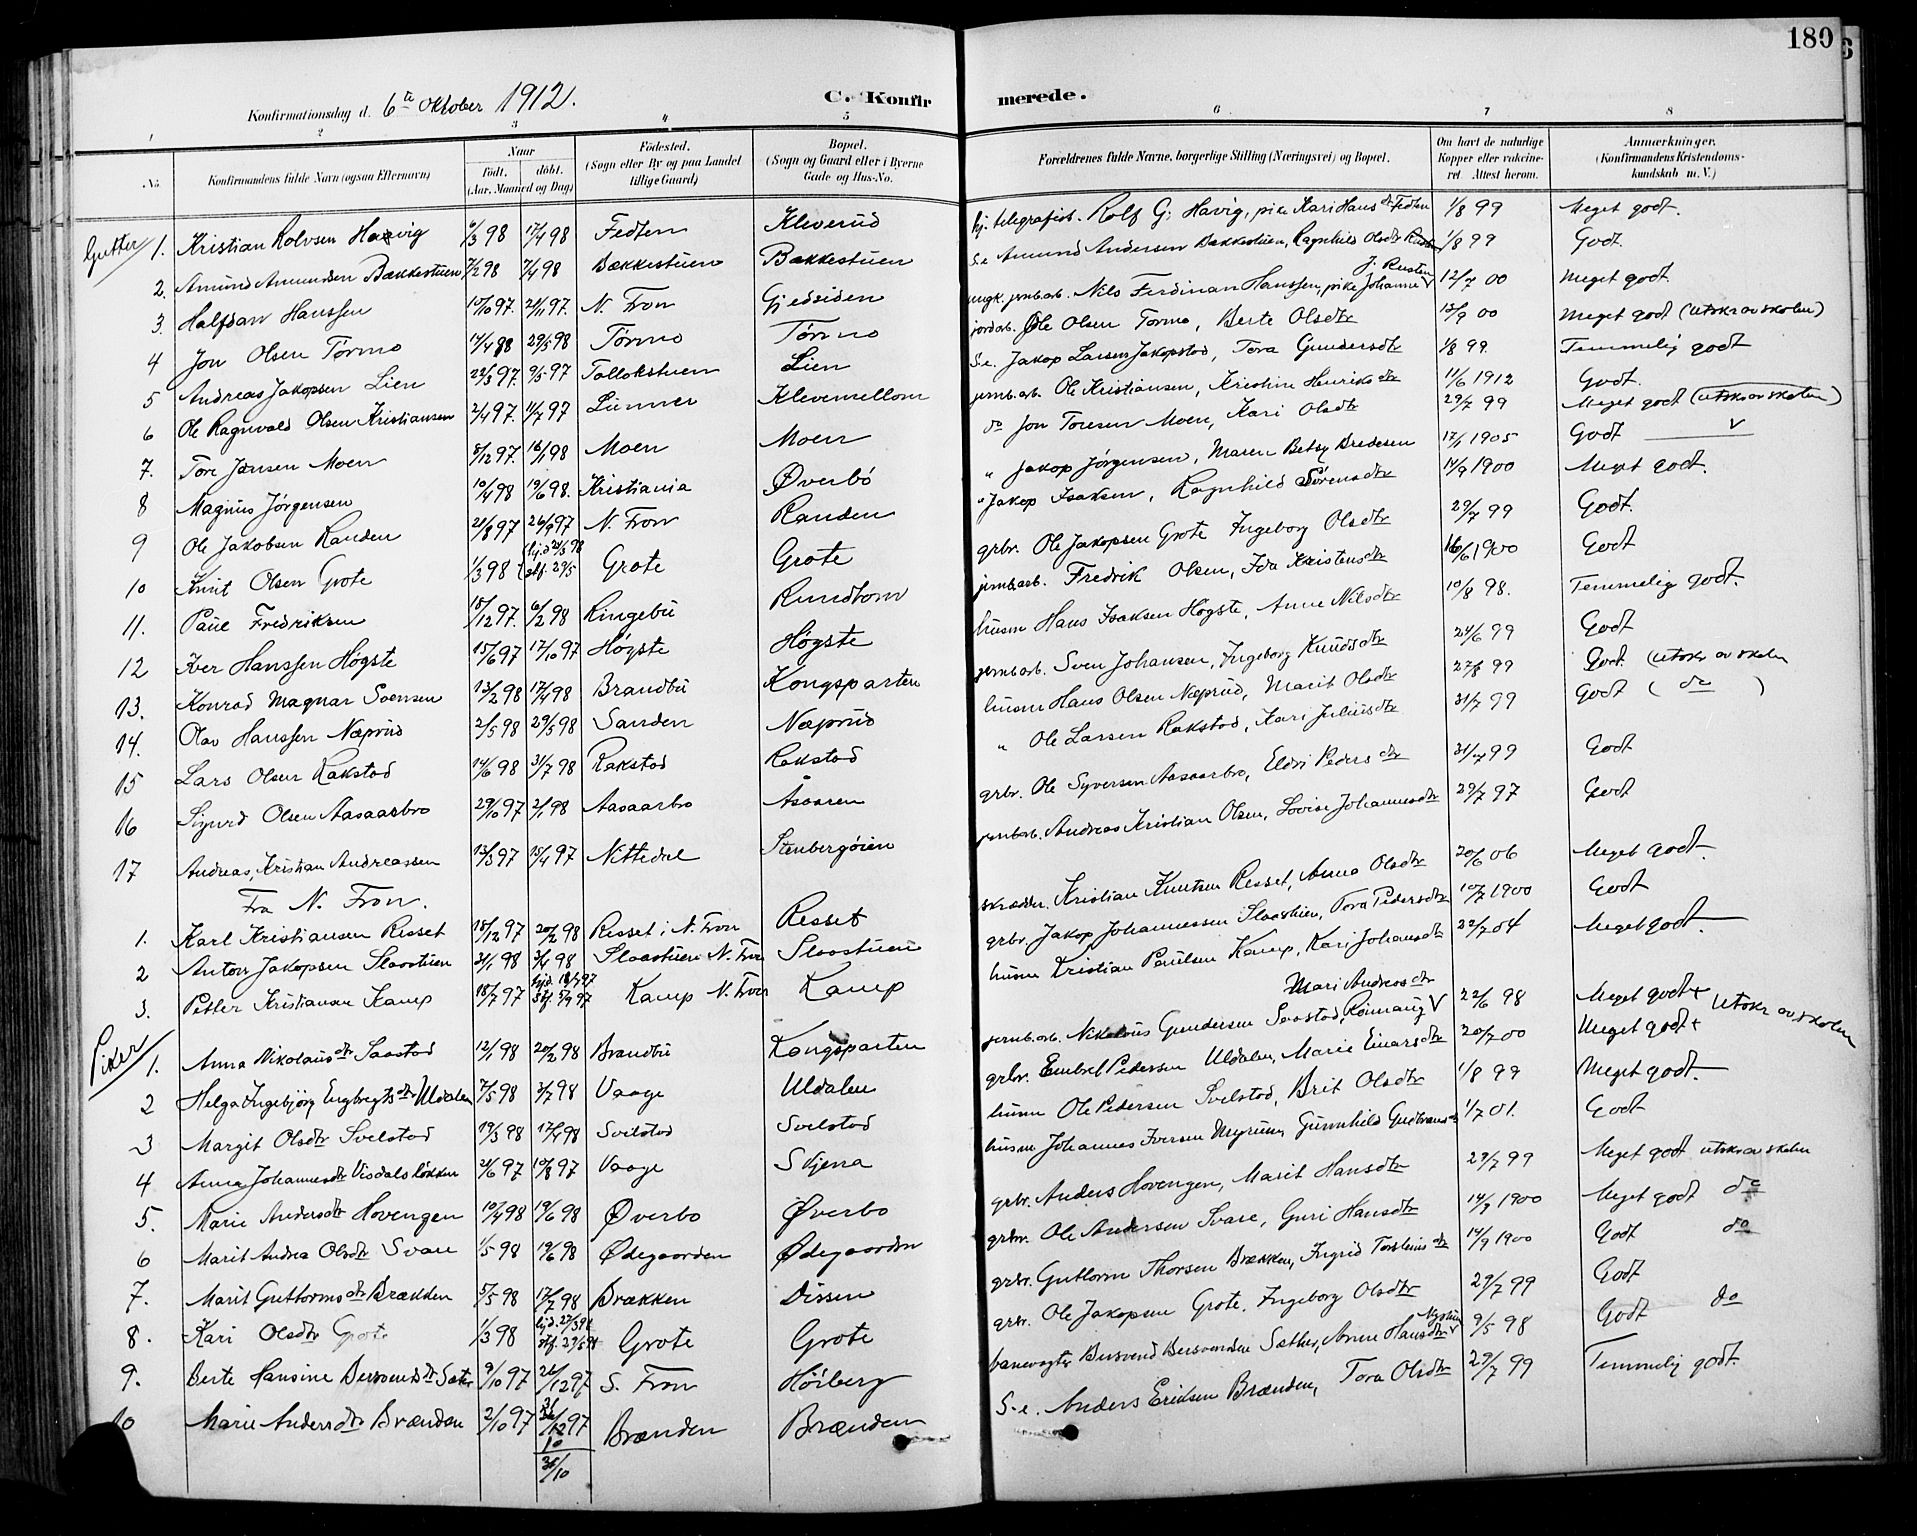 180
Konfirmationsdag d. 6te Oktober 1912.
C. Konfirmerede.
1 2 3 4 5 6 7 8
No.
Konfirmandens fulde Navn (ogsaa Efternavn)
Naar
Födt. döbt.
(Aar, Maaned og Dag)
Födested.
(Sogn eller By og paa Landet tillige Gaard)
Bopæl.
(Sogn og Gaard eller i Byerne Gade og Hus-No.
Forældrenes fulde Navne, borgerlige Stilling (Næringsvei) og Bopæl.
Om havt de naturlige Kopper eller vaccineret. Attest herom.
Anmærkninger.
(Konfirmandens Kristendomskundskab m. V.)
Gutter
1. Kristian Rolvsen Havig 6/3 98 17/4 98 Fedten Kleverud telegrafist. Rolf G. Havig, pike Kari Hans dtr Fedten 1/8 99 Meget godt.
2. Amund Amundsen Bakkestuen 7/2 98 7/4 98 Bækkestuen Bakkestuen S.e. Amund Andersen Bakkestuen, Ragnhild Olsdtr 1/8 99 Godt.
3. Halfdan Hanssen 10/10 97. 21/11 97. N. Fron Gjedsiden ungk. jernb.arb. Nils Ferdinan Hanssen, pike Johanne J. Rusten 12/7 00 Meget godt.
4 Jon Olsen Tørmo 17/4 98 29/5 98 Tørmo Tørmo jordarb. Ole Olsen Tormo, Berte Olsdtr 13/9 00 Meget godt (utskr av skolen)
5 Andreas Jakopsen Lien 22/3 97. 9/5 97 Tollokstuen Lien S.e. Jakop Larsen Jakopstad, Tora Gundersdtr 1/8 99. Temmelig godt
6 Ole Ragnvald Olsen Kristiansen 2/4 97. 11/7 97 Lunner Klevmellom jernb.arb. Ole Kristiansen, Kristine Henriks dtr 11/6 1912 Godt.
7. Tore Jonsen Moen 8/12 97. 16/1 98 Moen Moen do Jon Toresen Moen, Kari Olsdtr 29/7 99 Meget godt (utskr av skolen)
8 Magnus Jørgensen 10/4 98 19/6 98. Kristiania Øverbö " Jakop Jørgensen, Maren Betsy Bredesen 17/1 1905 Godt
9 Ole Jakobsen Randen 21/8 97 26/9 97 N. Fron Randen " Jakop Isaksen, Ragnhild Sörensdtr 14/9 1900 Meget godt.
10 Knut Olsen Grote 1/3 98 hj.d 21/3 98 stf. 29/5 Grote Grote grbr. Ole Jakopsen Grote Ingeborg Olsdtr 29/7 99 Godt.
11. Paul Fredriksen 18/12 97. 6/2 98 Ringebu Rundtom jernb.arb. Fredrik Olsen, Ida Kristensdtr 16/6 1900 Godt
12 Iver Hanssen Høgste 15/6 97 17/10 97 Høgste Høgste husm Hans Isaksen Högste, Anne Nilsdtr 10/8 98. Temmelig godt.
13. Konrad Magnar Svensen 13/2 98 17/4 98 Brandbu Kongsparten jernb.arb. Sven Johansen, Ingeborg Knudsdtr 24/6 99 Godt
14. Olav Hanssen Næprud 2/5 98 29/5 98 Sanden Næprud husm Hans Olsen Næprud, Marit Olsdtr 27/8 99 Godt (utskr av skolen
15 Lars Olsen Rakstad 14/6 98 31/7 98 Rakstad Rakstad " Ole Larsen Rakstad, Kari Juliusdtr 31/7 99 Godt ( do )
16 Sigurd Olsen Aasaarbro 29/10 97 2/1 98 Aasaarbro Åsaaren grbr. Ole Syversen Aasaarbro, Eldri Peders dtr 31/7 99 Godt
17 Andreas Kristian Andreassen 13/3 97 15/4 97 Nittedal Stenbergöien jernb.arb. Andreas Kristian Olsen, Lovise Johannesdtr 29/7 97 Godt
Fra N. Fron.
1. Karl Kristiansen Risset 18/12 97 20/2 98 Risset i N. Fron Risset skrædder. Kristian Knutsen Risset, Anna Olsdtr 20/6 06 Meget godt.
2 Anton Jakopsen Slaastuen 31/1 98 3/4 98 Slaastuen N. Fron Slaastuen grbr. Jakop Johannessen Slaastuen, Tora Pedersdtr 10/7 1900 Godt
3. Petter Kristiansen Kamp 18/7 97 hj.d. 18/7 97 stf. 5/9 97 Kamp N. Fron Kamp husm Kristian Paulsen Kamp, Kari Johansdtr 22/7 04 Meget godt.
Piker
1. Anna Nikolaus dtr Saastad 12/1 98 20/2 98 Brandbu Kongsparten jernb.arb. Nikolaus Gundersen Saastad, Rönnaug Mari Andreasdtr 22/6 98 Meget godt + utskr av skolen
2 Helga Ingebjörg Engbregts dtr Uldalen 7/5 98 3/7 98 Vaage Uldalen grbr. Embret Pedersen Uldalen, Marie Einarsdtr 20/7 00 Meget godt +
3 Margit Olsdtr Svelstad 19/3 98 17/4 98 Svelstad Svelstad husm Ole Pedersen Svelstad, Brit Olsdtr 1/8 99 Meget godt.
4 Anna Johannesdtr Visdalsløkken 21/6 97 10/8 97 Vaage Skjena husm Johannes Iversen Myrum, Gunnhild Gudbrandsdtr 1/7 01. Godt
5. Marie Andersdtr Hovengen 10/4 98 19/6 98 Øverbo Øverbo grbr. Anders Hovengen, Marit Hansdtr 29/7 99 Meget godt utskr av skolen
6 Marit Andrea Olsdtr Svare 1/5 98 19/6 98 Ødegaarden Ødegaarden grbr. Ole Andersen Svare, Guri Hansdtr 14/9 1900 Meget godt do
7. Marit Guttormsdtr Brækken 5/5 98 17/7 98 Brækken Dissen grbr. Guttorm Thorsen Brækken, Ingrid Torsteins dtr 14/9 1900 Godt do
8. Kari Olsdtr Grote 1/3 98 hj.d. 27/3 98 stf. 29/5 98 Grote Grote grbr. Ole Jakopsen Grote, Ingeborg Olsdtr 29/7 99 Godt
9. Berte Hansine Bersvendsdtr Sæter 9/10 97 26/12 97 S. Fron Hörberg banevogter Bersvend Bersvendsen Sæther, Anne Hansdtr 9/5 98 Godt do
10 Marie Andersdtr Brænden 2/10 97 31/10 97 Brænden Brænden S.e. Anders Eriksen Brænden, Tora Olsdtr 29/7 99 Temmelig godt.
31/10